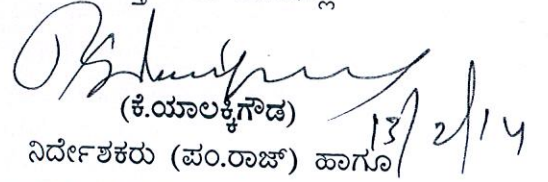 (ಕೆ.ಯಾಲಕ್ಕಿಗೌಡ)
13/2/14
ನಿರ್ದೇಶಕರು (ಪಂ.ರಾಜ್) ಹಾಗೂ